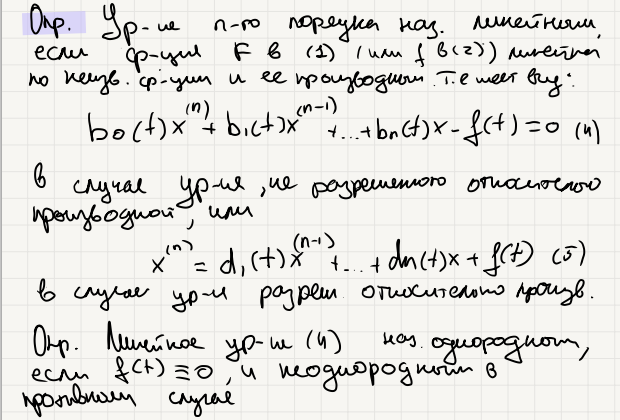 Опр. Ур-ие n-го порядка наз. линейным,
если ф-ция F в (1) (или f в (2)) линейна
по неизв. ф-ции и ее производным. Т.е имеет вид:
b₀(t)x⁽ⁿ⁾ + b₁(t)x⁽ⁿ⁻¹⁾ + ... + bₙ(t)x - f(t) = 0 (4)
в случае ур-ия, не разрешенного относительно
производной, или
x⁽ⁿ⁾ = d₁(t)x⁽ⁿ⁻¹⁾ + ... + dₙ(t)x + f(t) (5)
в случае ур-и разреш относительно произв.
Опр. Линейное ур-ие (4) наз. однородным,
если f(t) ≡ 0, и неоднородным в
противном случае